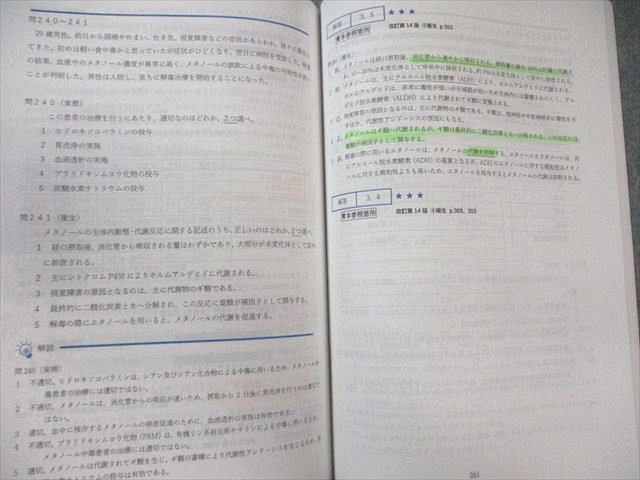 問240~241
29歳男性。前日から頭痛やめまい、吐き気、視覚障害などの症状があらわれ、徐々に悪化し
てきた。初めは軽い食中毒かと思っていたが症状がひどくなり、翌日に病院を受診した。検査
の結果、血液中のメタノール濃度が異常に高く、メタノールの誤飲による中毒の可能性が高い
ことが判明した。男性は入院し、直ちに解毒治療を開始することになった。
問240(実務)
この患者の治療を行うにあたり、適切なのはどれか。2つ選べ。
1 ヒドロキソコバラミンの投与
2 胃洗浄の実施
3 血液透析の実施
4 プラリドキシムヨウ化物の投与
5 炭酸水素ナトリウムの投与
問241(衛生)
メタノールの生体内動態・代謝反応に関する記述のうち、正しいのはどれか。2つ選べ。
1 経口摂取後、消化管から吸収される量はわずかであり、大部分が未変化体として尿中
に排泄される。
2 主にシトクロムP450によりホルムアルデヒドに代謝される。
3 視覚障害の原因となるのは、主に代謝物のギ酸である。
4 最終的に二酸化炭素と水へ分解され、この反応に葉酸が補因子として関与する。
5 解毒の際にエタノールを用いると、メタノールの代謝を促進する。
解説
問240(実務)
1 不適切。ヒドロキソコバラミンは、シアン及びシアン化合物による中毒に用いるため、メタノール中
毒患者の治療には適切ではない。
2 不適切。メタノールは、消化管からの吸収が速いため、摂取から2日後に胃洗浄を行うのは適切で
はない。
3 適切。血中に残存するメタノールの排泄促進のために、血液透析の実施は有効である。
4 不適切。プラリドキシムヨウ化物(PAM)は、有機リン系殺虫剤やサリンによる中毒に用いるため、
メタノール中毒患者の治療には適切ではない。
5 適切。メタノールは代謝されてギ酸を生じ、ギ酸の蓄積により代謝性アシドーシスを生じるため、炭
ナトリウムの投与は有効である。
解答 3、5 ★★★
青本参照箇所 改訂第14版 ④衛生 p.355
問241(衛生)
ド脱水素酵素(ALDH)により代謝されてギ酸に変換される。
3 正。視覚障害の原因となるのは、主に代謝物のギ酸である。
4 正。メタノールはギ酸へ代謝されるが、ギ酸は最終的に二酸化炭素と水へ分解される。この反応には
葉酸が補因子として関与する。
5 誤。解毒の際に用いるエタノールは、メタノールの代謝を抑制する。エタノールとメタノールは、共
にアルコール脱水素酵素(ADH)の基質となるが、ADHのエタノールに対する親和性はメタノール
に対する親和性よりも高いため、エタノールを投与するとメタノールの代謝は抑制される。
解答 3、4 ★★★
青本参照箇所 改訂第14版 ④衛生 p.309、355
261